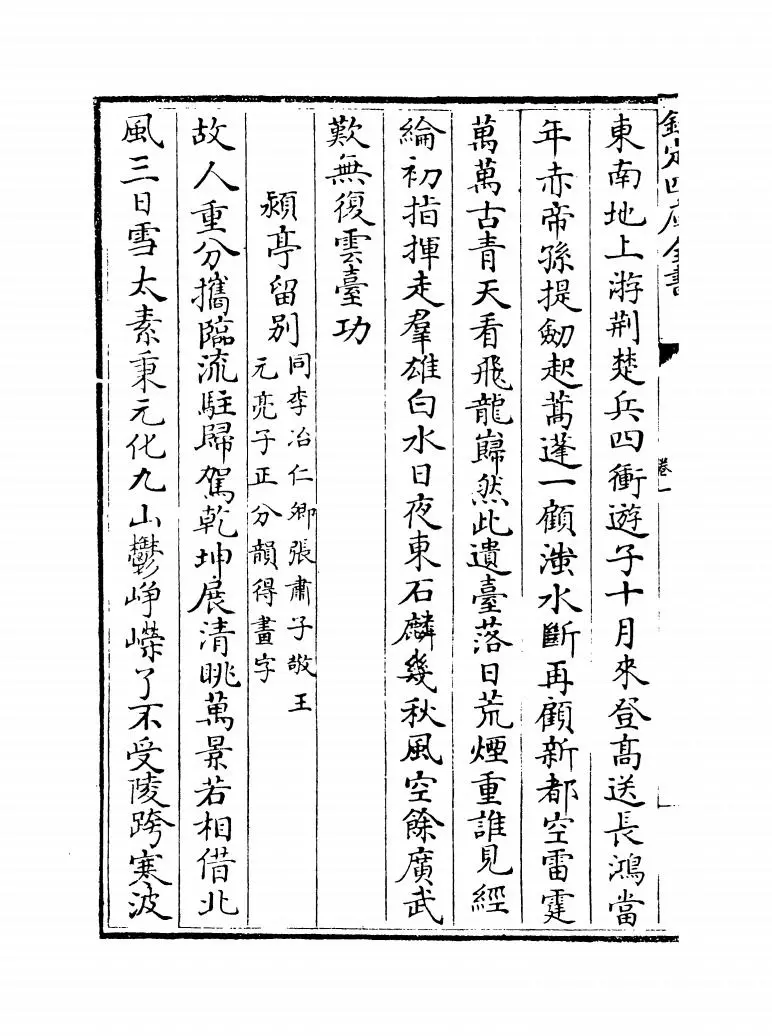 欽定四庫全書
卷一
東南地上游荆楚兵四衝遊子十月來登髙送長鴻當
年赤帝孫提劒起蒿蓬一顧滍水斷再顧新都空雷霆
萬萬古青天看飛龍巋然此遺臺落日荒煙重誰見經
綸初指揮走羣雄白水日夜東石麟幾秋風空餘廣武
歎無復雲臺功
潁亭留别
同李冶仁卿張肅子敬王
元亮子正分韻得畫字
故人重分攜臨流駐歸駕乾坤展清眺萬景若相借北
風三日雪太素秉元化九山鬱峥嶸了不受陵跨寒波